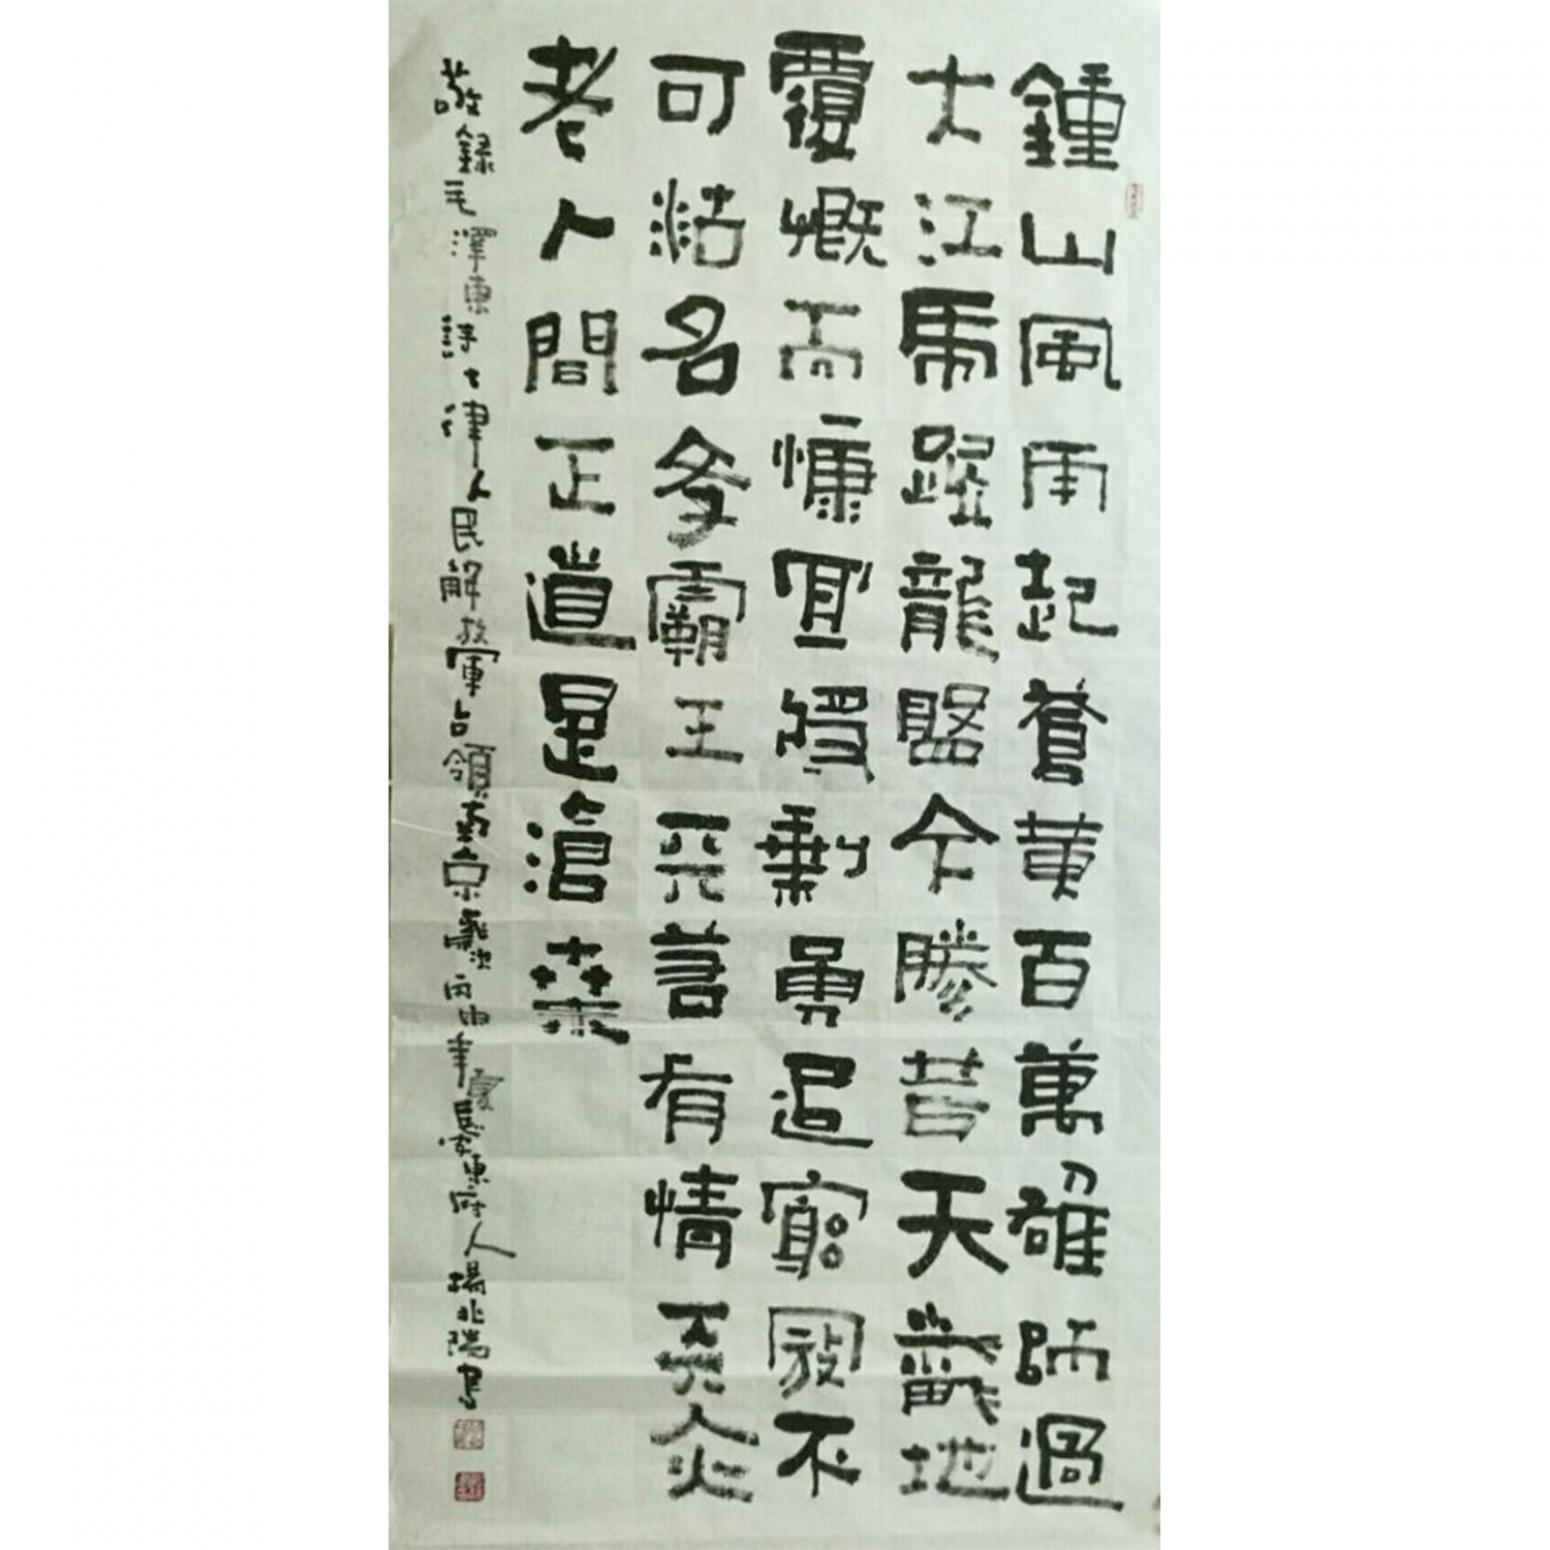 鍾山風雨起蒼黃百萬雄師過
大江虎踞龍盤今勝昔天翻地
覆慨而慷宜將剩勇追窮寇不
可沽名學霸王天若有情天亦
老人間正道是滄桑
敬録毛澤東詩七律人民解放軍占領南京丙申年夏長安東府人楊兆瑞書